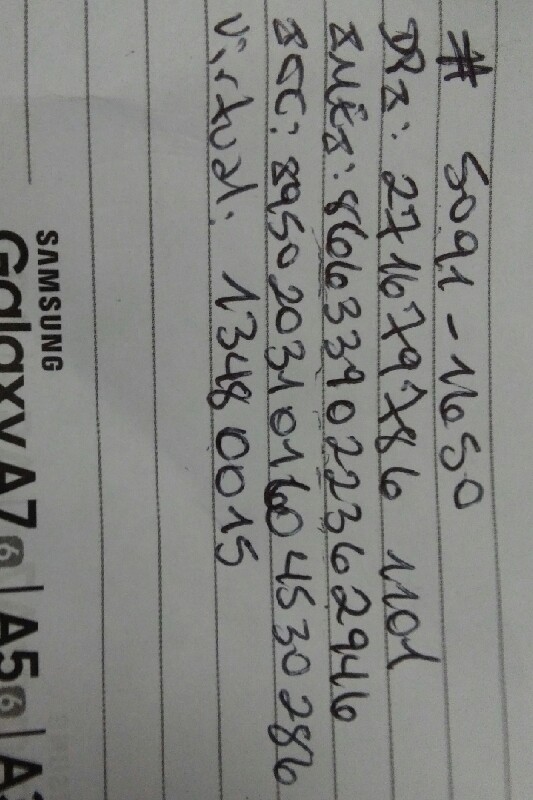 # 5091-1650
DPI: 271679786 1101
IMEI: 866339022362946
ICC: 8950203101604530286
Virtual: 13480015
SAMSUNG
Galaxy A7 6 | A5 6 |